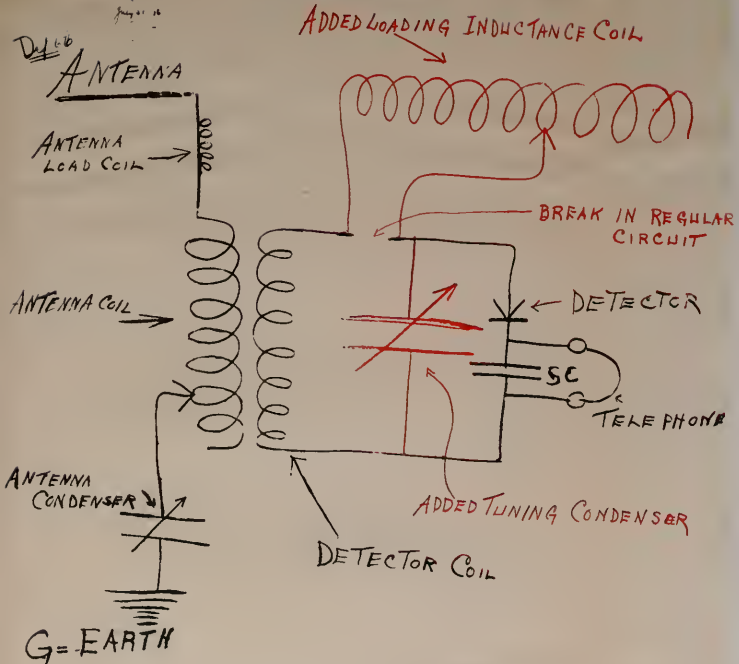 ADDED LOADING INDUCTANCE COIL
ANTENNA
ANTENNA
LOAD COIL
BREAK IN REGULAR
CIRCUIT
ANTENNA COIL
DETECTOR
SC
TELEPHONE
ANTENNA
CONDENSER
ADDED TUNING CONDENSER
DETECTOR COIL
G = EARTH